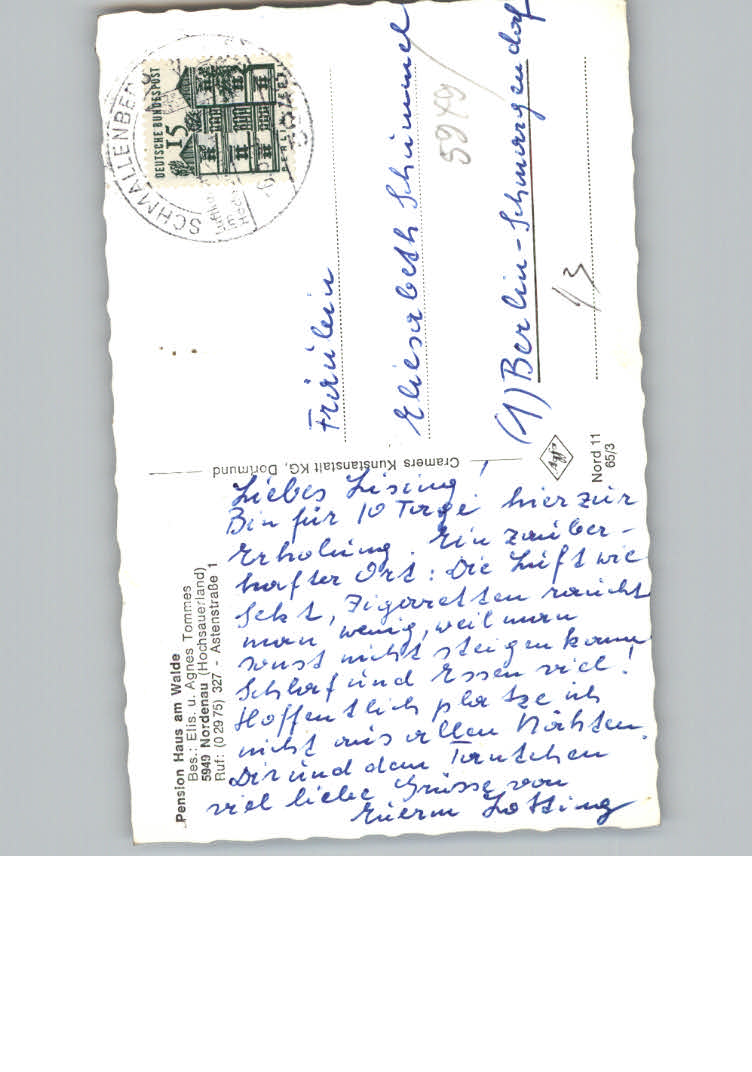 Pension Haus am Walde
Bes.: Elis. u. Agnes Tommes
5949 Nordenau (Hochsauerland)
Ruf: (0 29 75) 327 - Astenstraße 1
Liebes Lising!
Bin für 10 Tage hier zur
Erholung. Ein zauber-
hafter Ort: Die Luft wie
Sekt, Zigaretten raucht
man wenig, weil man
sonst nicht steigen kann
Schlaf und Essen viel!
Hoffentlich platze ich
nicht aus allen Nähten.
Dir und dem Tantchen
viel liebe Grüsse von
Euerm Lotting
Cramers Kunstanstalt KG, Dortmund
SCHMALLENBE
DEUTSCHE BUNDESPOST
15
BERLIN
Fräulein
Eliesabeth Schümmel
(1) Berlin-Schmargendorf
5979
Agfa
Nord 11
65/3